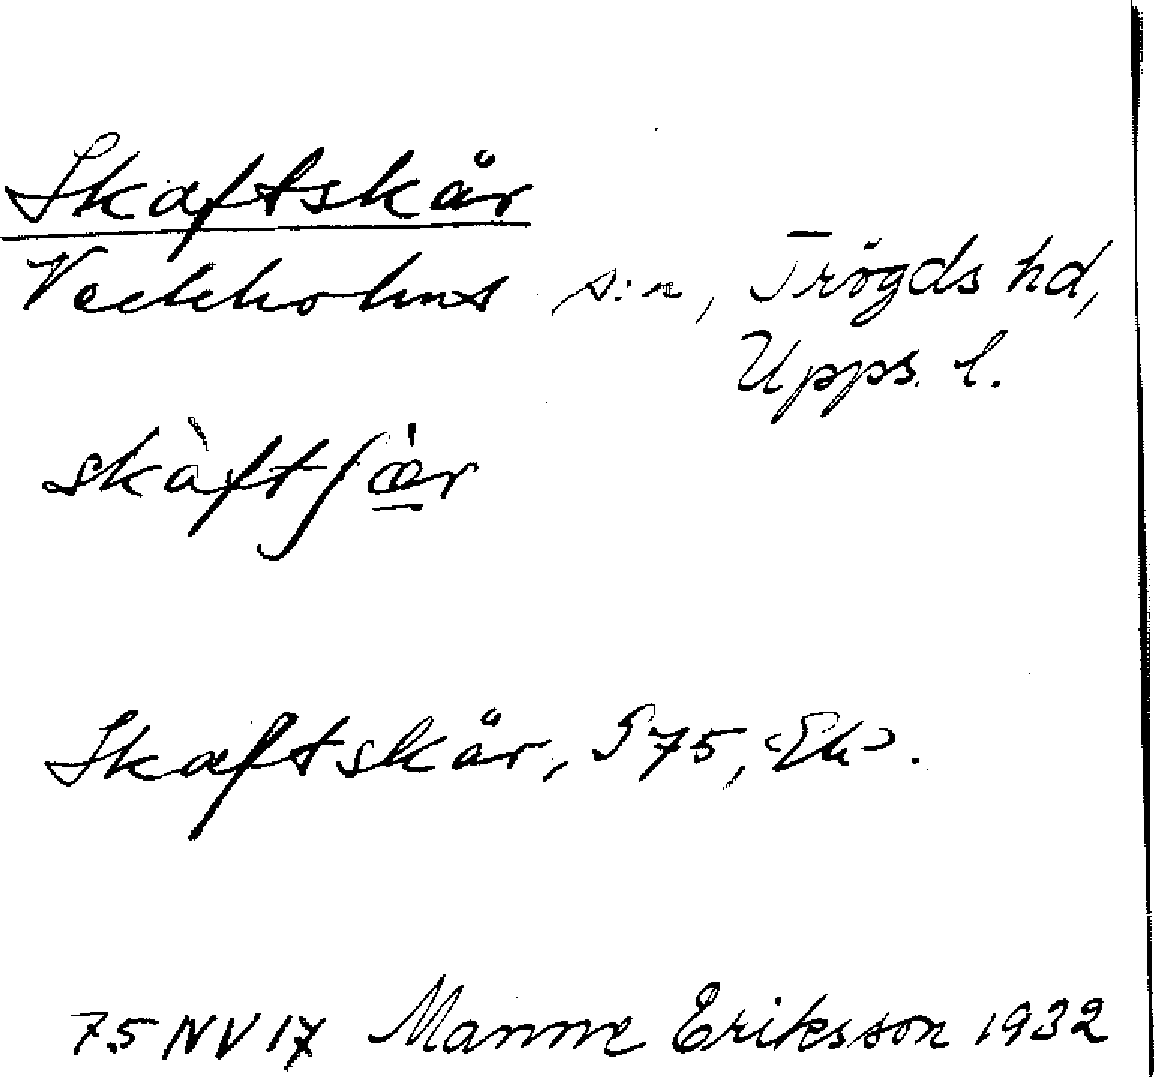 Skaftskär
Veckholms s:n, Trögds hd,
Upps. l.
skàftʃæ̀r
Skaftskär, S 75, Ek.
75 NV 17 Manne Eriksson 1932